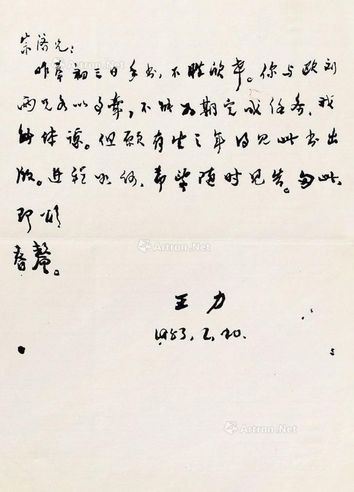 宗济兄：
昨奉初三日手书，不胜欣幸。你与欧刘
两兄各以事牵，不能如期完成任务，我
能体谅。但愿有生之年得见此书出
版。进程如何，希望随时见告。匆此，
即颂
春釐。
王力
1983.2.20.
Artron.Net
Artron.Net